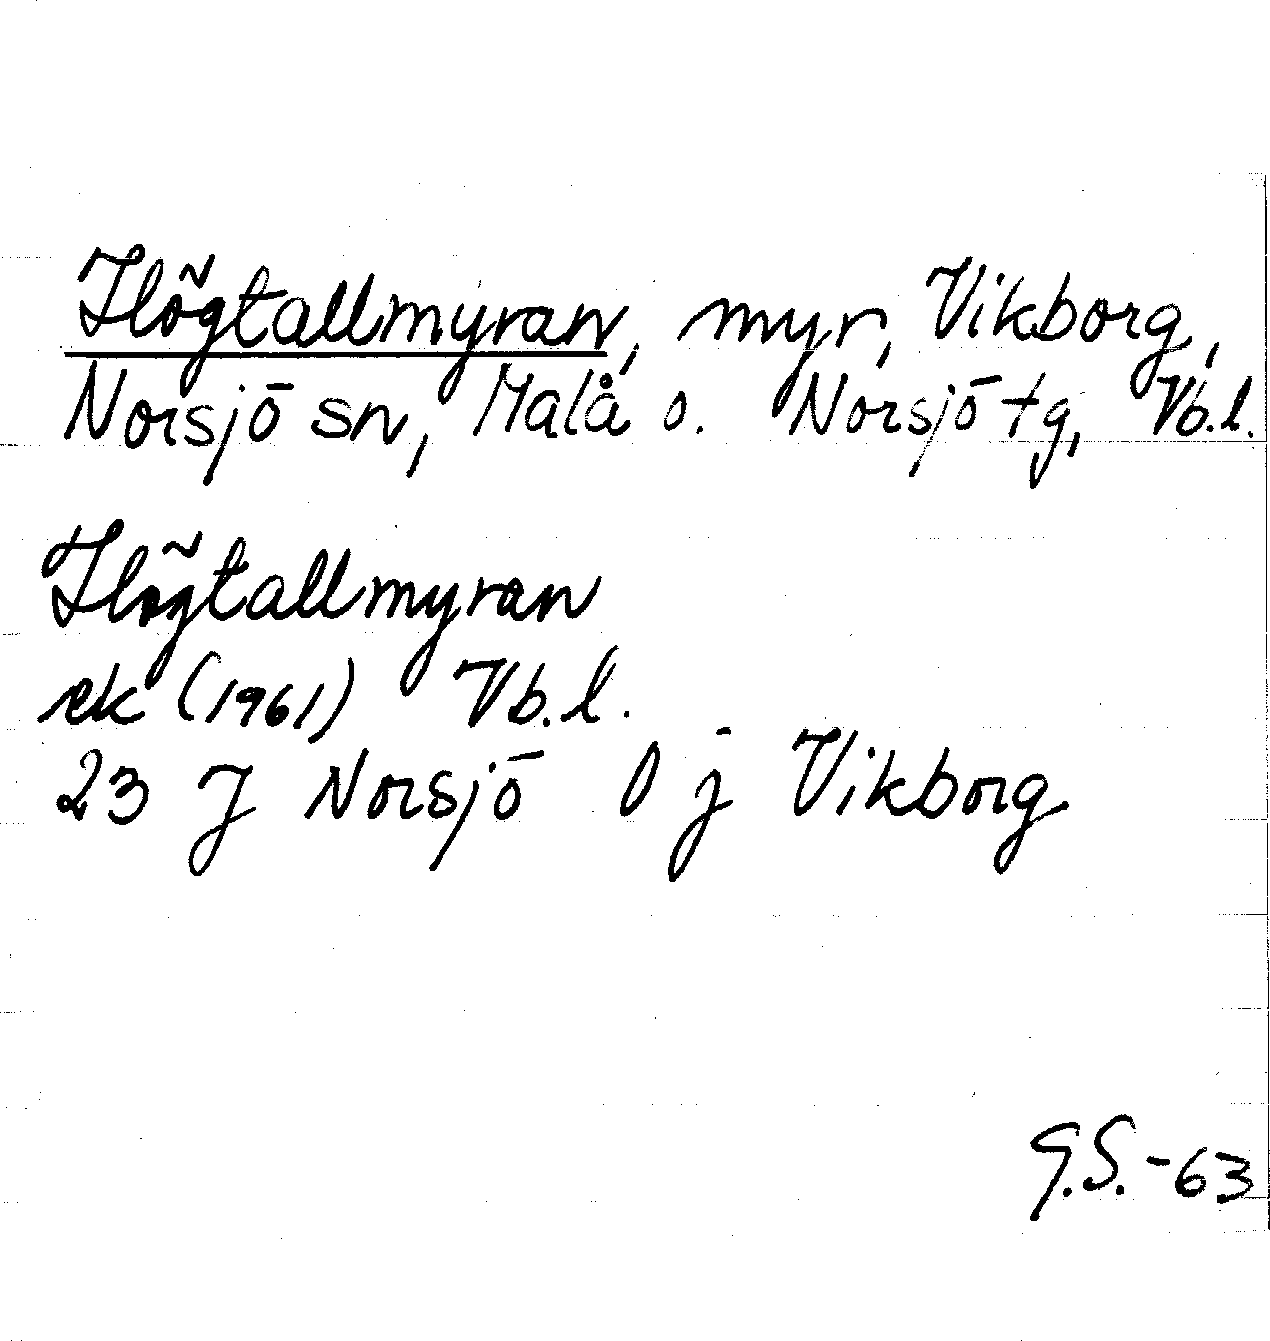 Högtallmyran, myr, Vikborg,
Norsjö sn, Malå o. Norsjö tg, Vb.l.
Högtallmyran
ek (1961) Vb.l.
23 J Norsjö 0 j Vikborg
G.S. -63